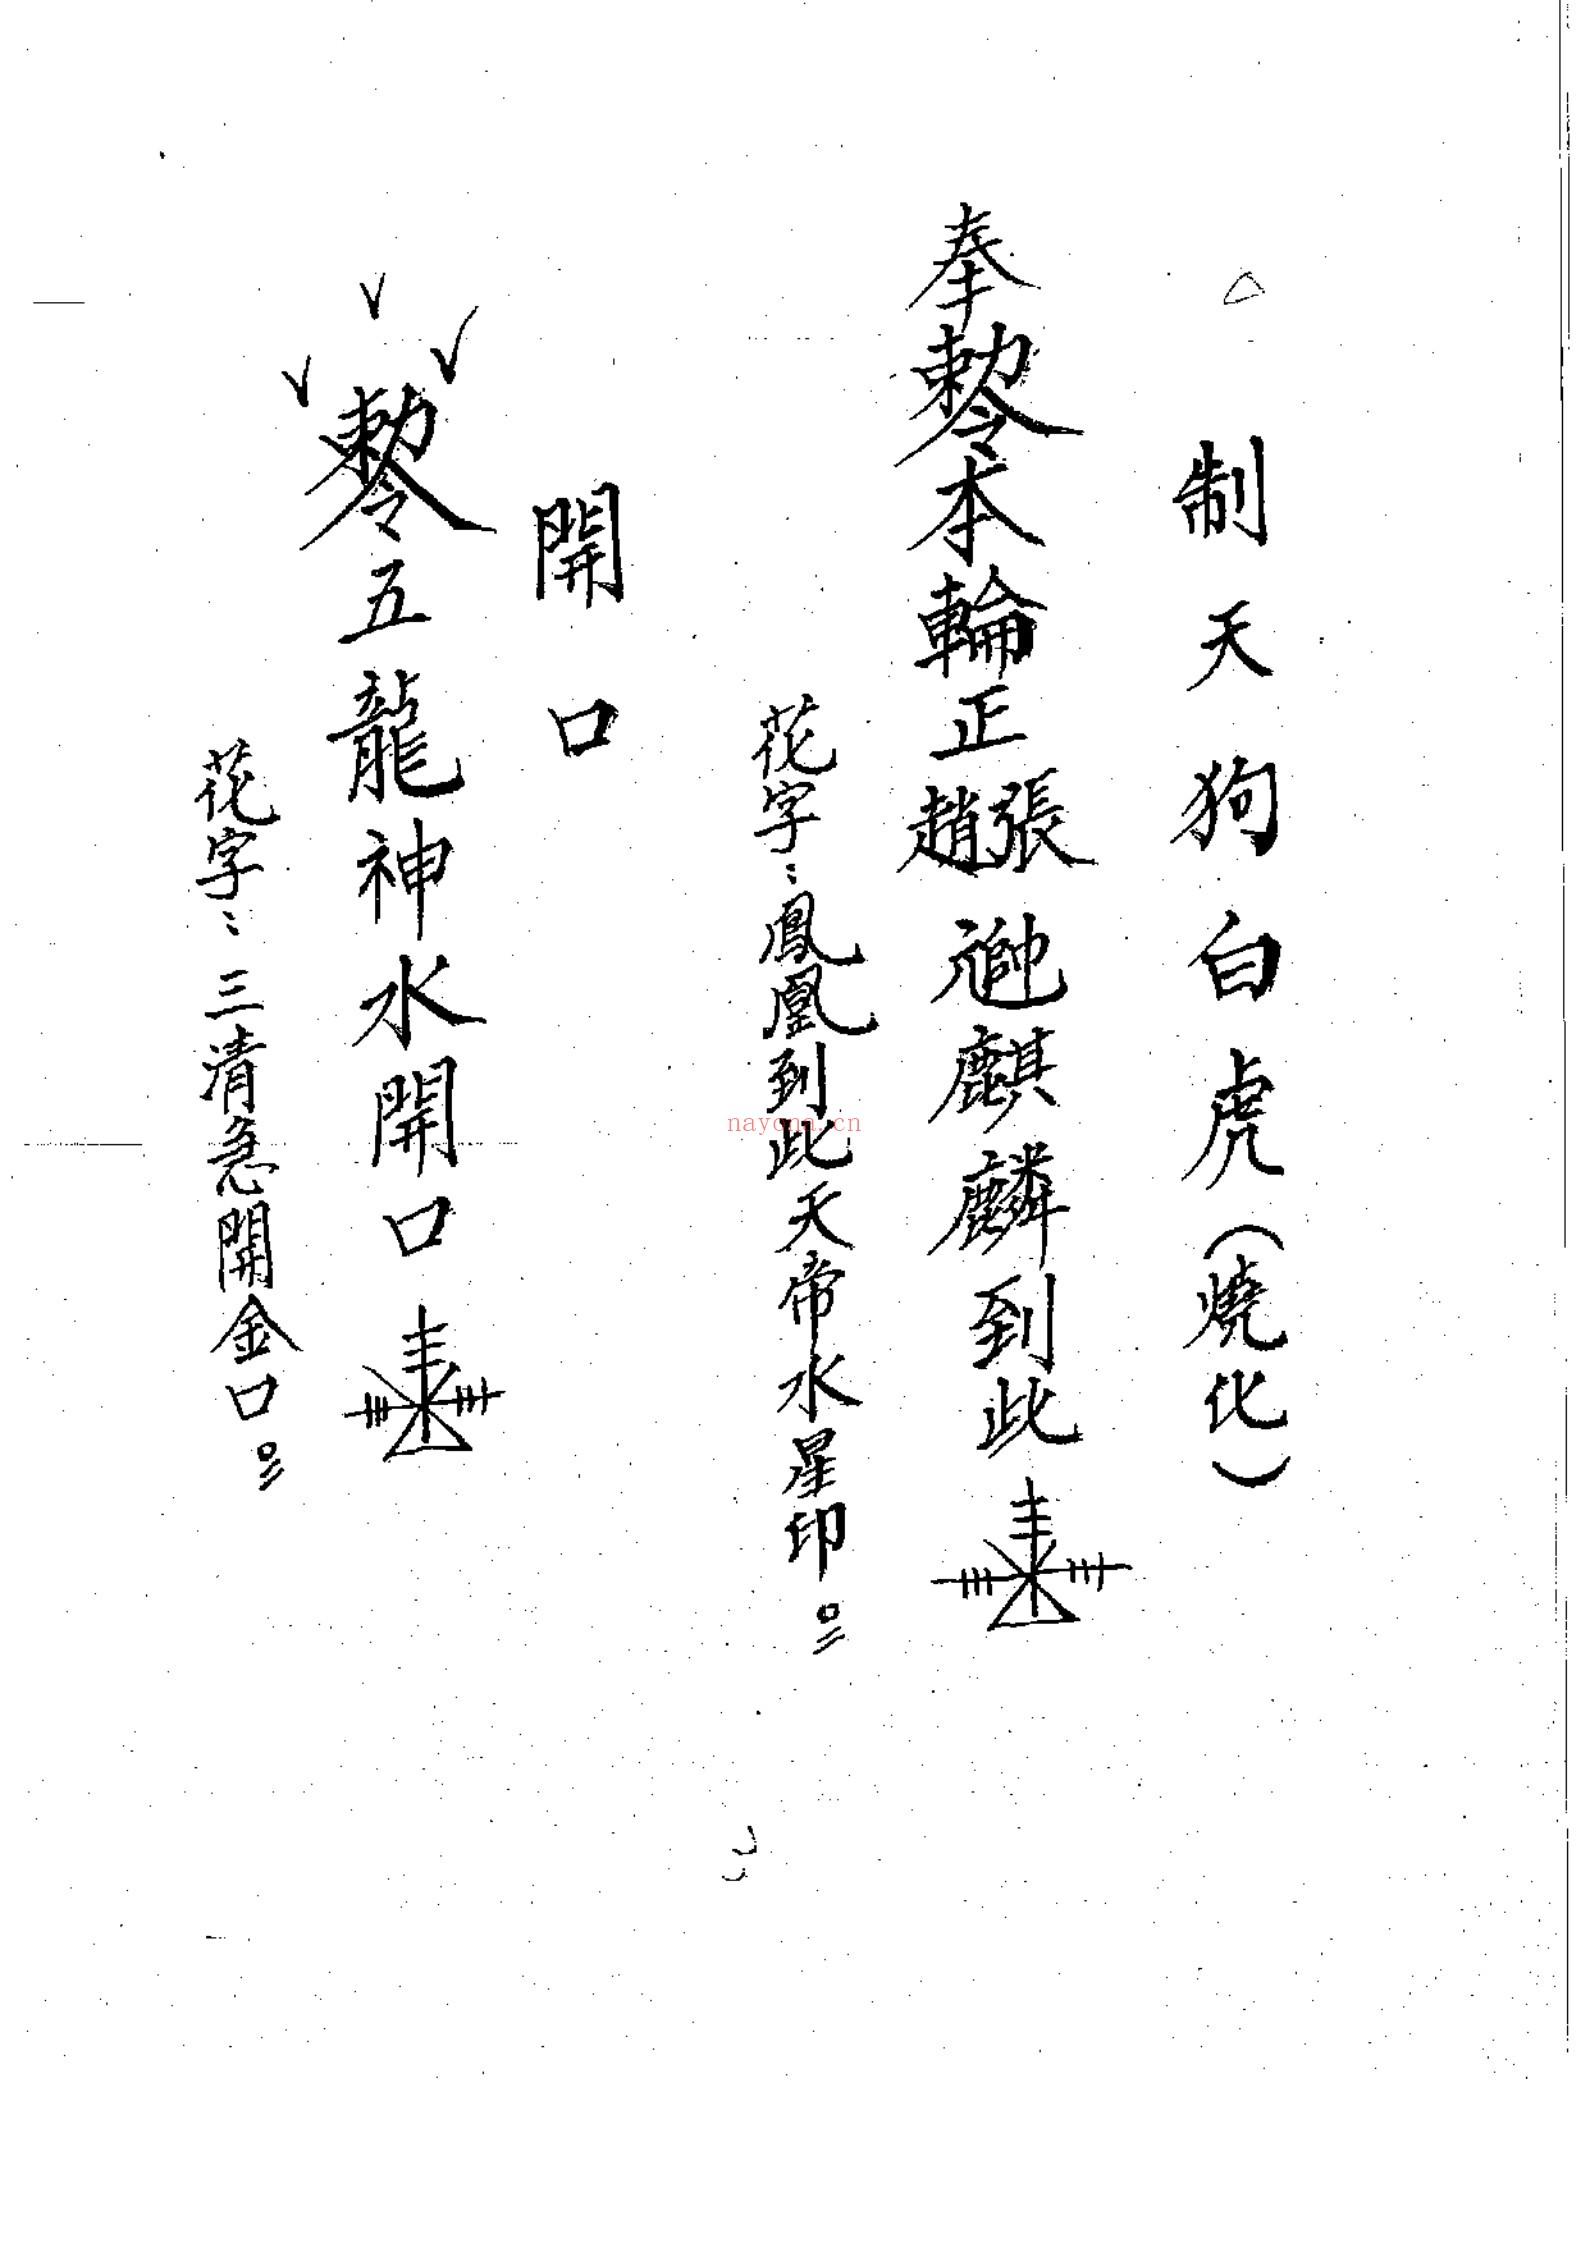 制天狗白虎（燒化）
奉勅令本輪正趙張元帥麒麟到此
花字：鳳凰到此天帝水星印
開口
勅令五龍神水開口
花字：三清急開金口
nayona.cn